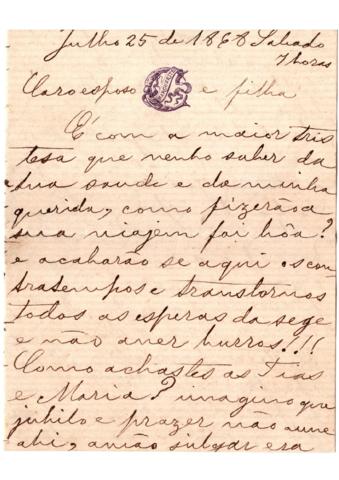 Julho 25 de 1868 Sabado
7 horas
Caro esposo e filha
É com a maior tris
tesa que venho saber da
tua saude e da minha
querida, como fizerão a
sua viajem foi bôa?
e acabarão se aqui os con
tratempos e transtornos
todos as esperas da sege
e não aver burros!!!
Como achastes as Tias
e Maria? imagino que
jubilo e prazer não
ahi, a julgar